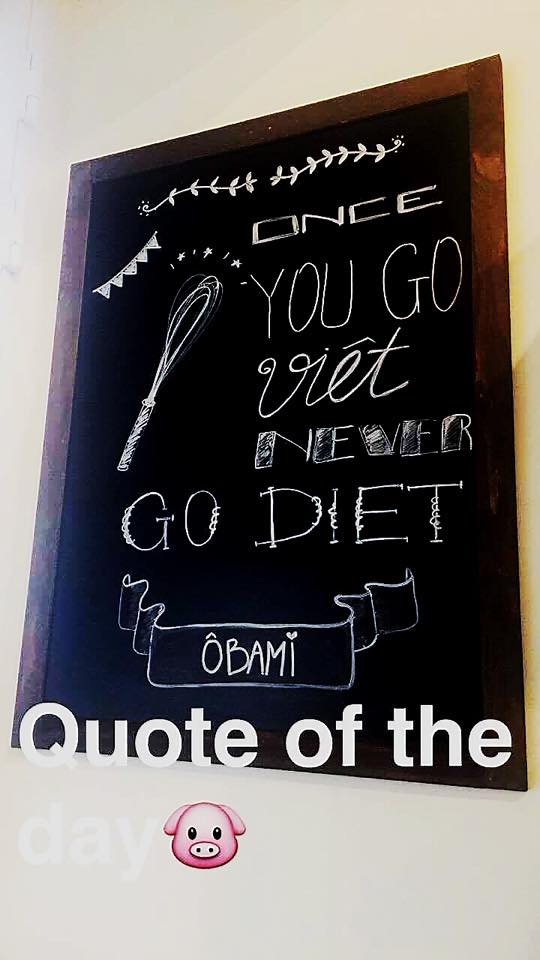 ONCE
YOU GO
Viêt
NEVER
GO DIET
ÔBAMI
Quote of the
day🐷